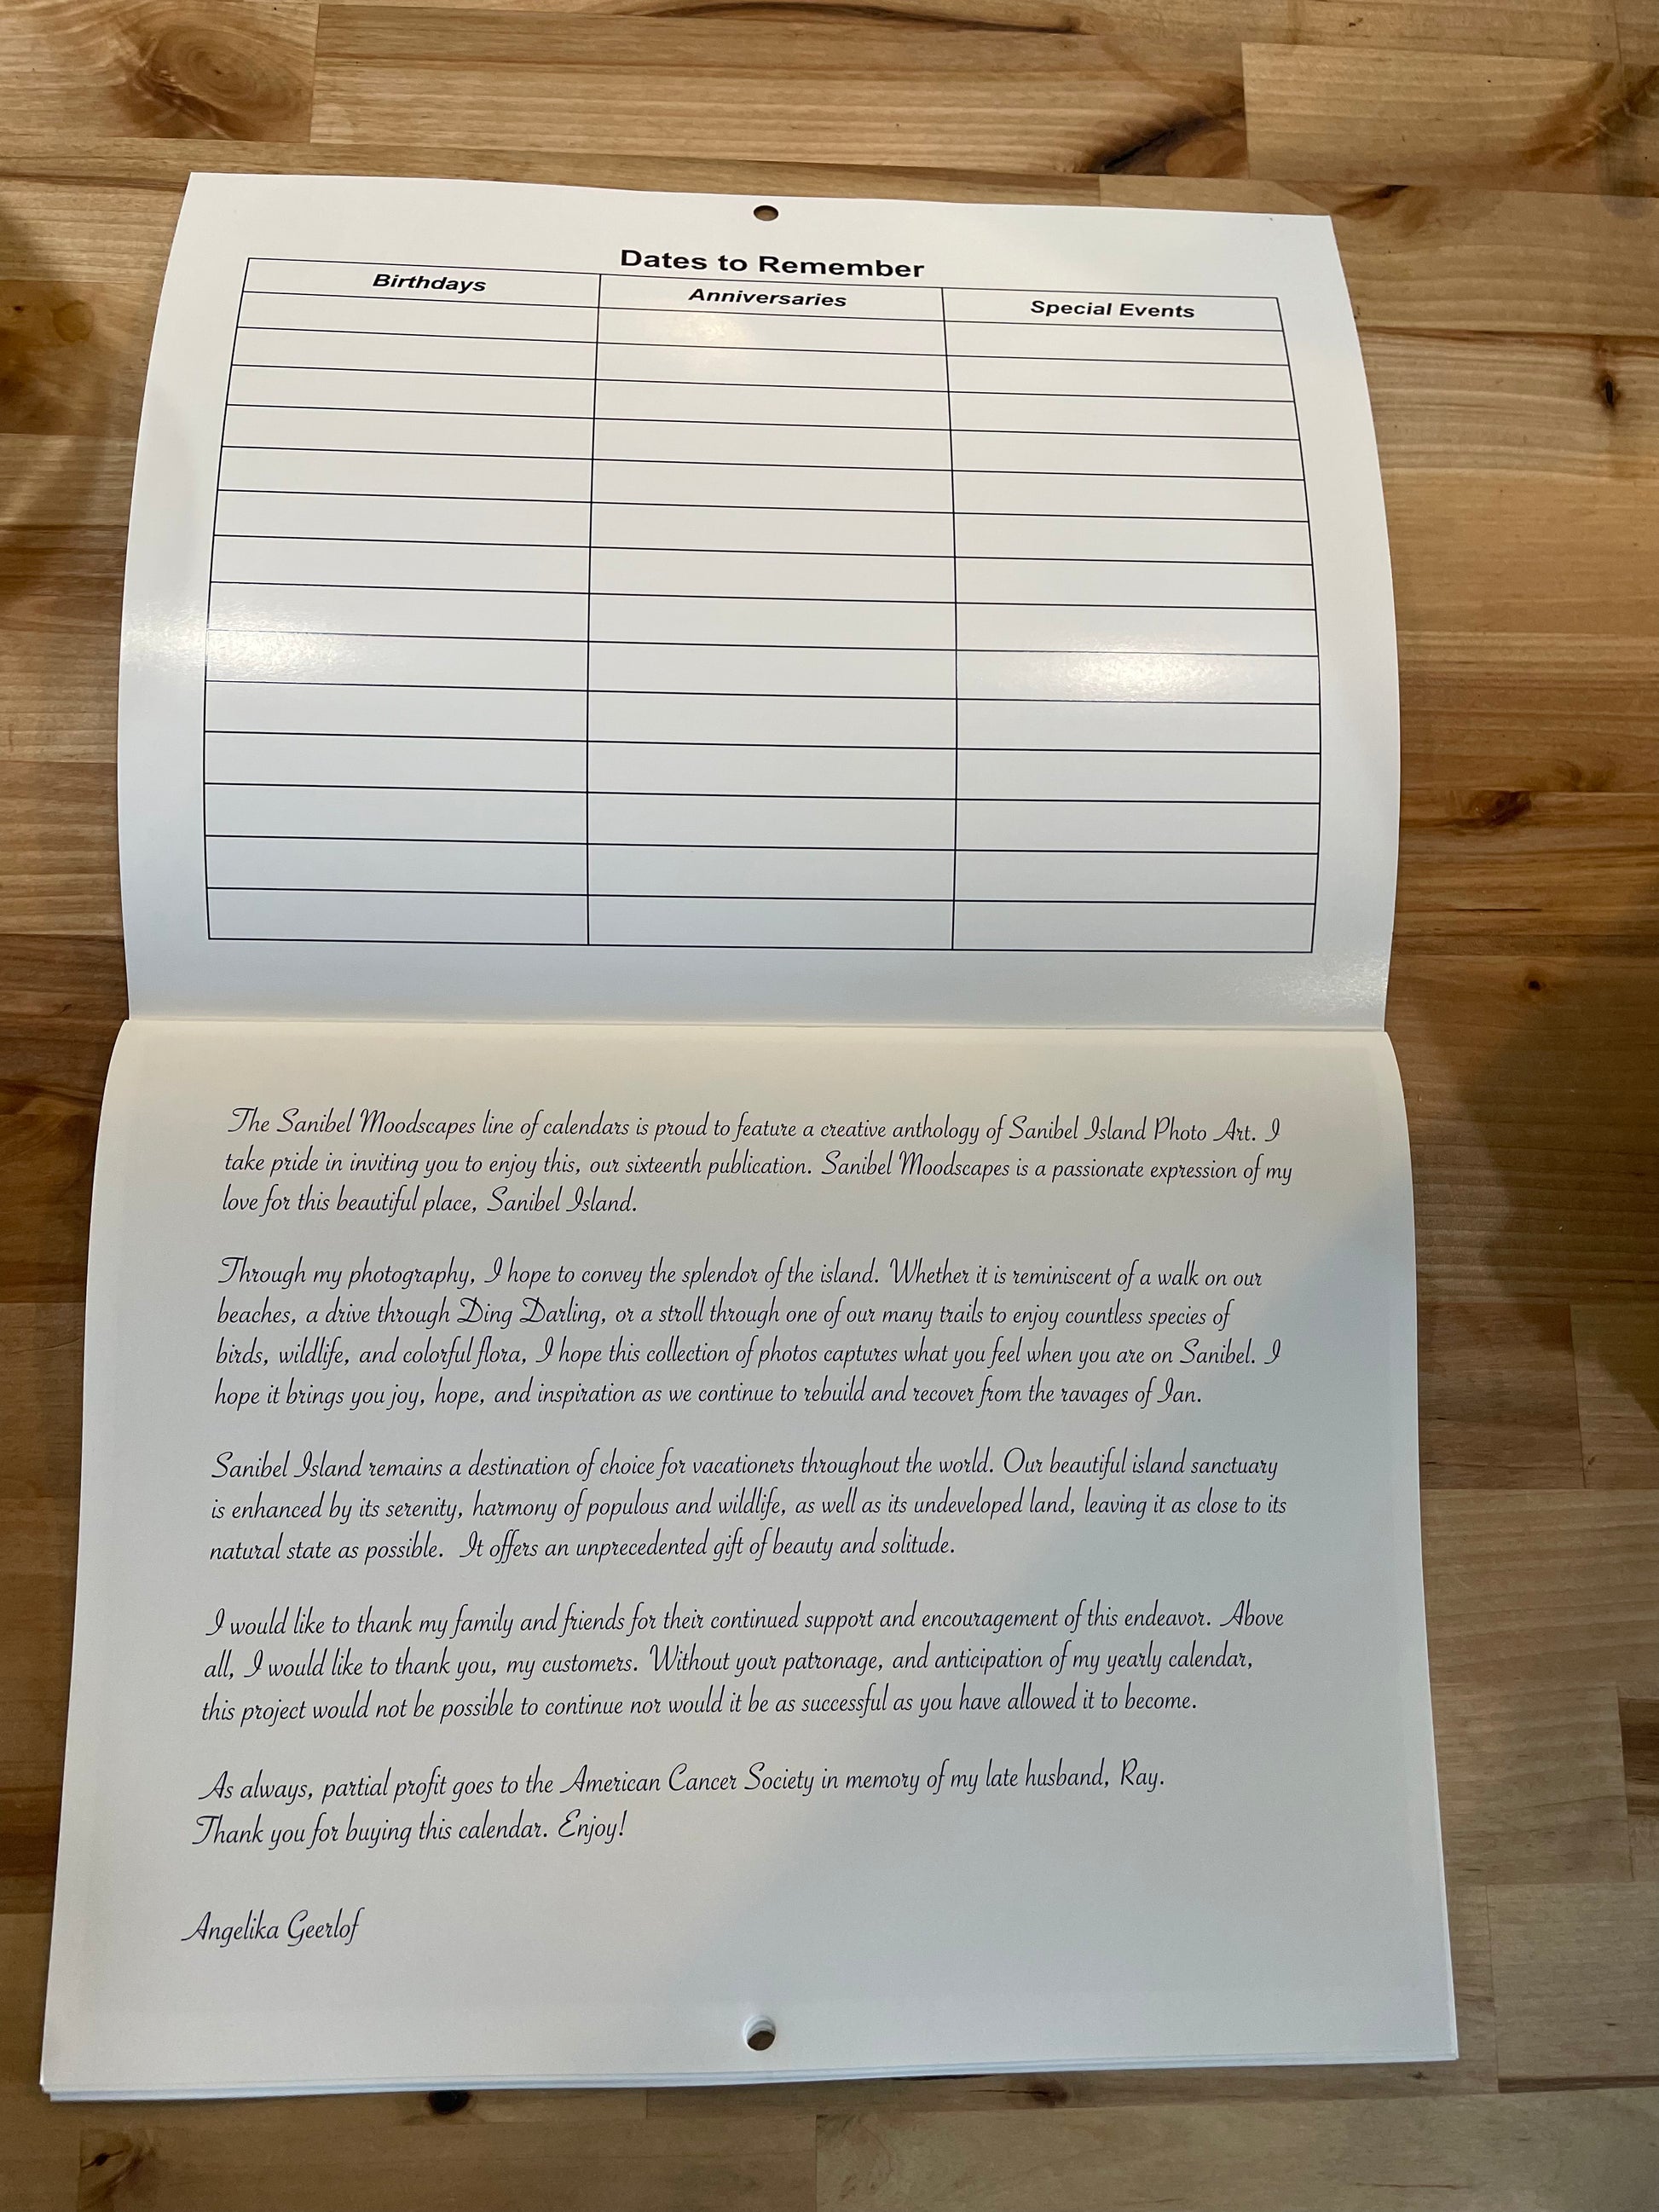 Dates to Remember
Birthdays
Anniversaries
Special Events
The Sanibel Moodscapes line of calendars is proud to feature a creative anthology of Sanibel Island Photo Art. I
take pride in inviting you to enjoy this, our sixteenth publication. Sanibel Moodscapes is a passionate expression of my
love for this beautiful place, Sanibel Island.
Through my photography, I hope to convey the splendor of the island. Whether it is reminiscent of a walk on our
beaches, a drive through Ding Darling, or a stroll through one of our many trails to enjoy countless species of
birds, wildlife, and colorful flora, I hope this collection of photos captures what you feel when you are on Sanibel. I
hope it brings you joy, hope, and inspiration as we continue to rebuild and recover from the ravages of Ian.
Sanibel Island remains a destination of choice for vacationers throughout the world. Our beautiful island sanctuary
is enhanced by its serenity, harmony of populous and wildlife, as well as its undeveloped land, leaving it as close to its
natural state as possible. It offers an unprecedented gift of beauty and solitude.
I would like to thank my family and friends for their continued support and encouragement of this endeavor. Above
all, I would like to thank you, my customers. Without your patronage, and anticipation of my yearly calendar,
this project would not be possible to continue nor would it be as successful as you have allowed it to become.
As always, partial profit goes to the American Cancer Society in memory of my late husband, Ray.
Thank you for buying this calendar. Enjoy!
Angelika Geerlof